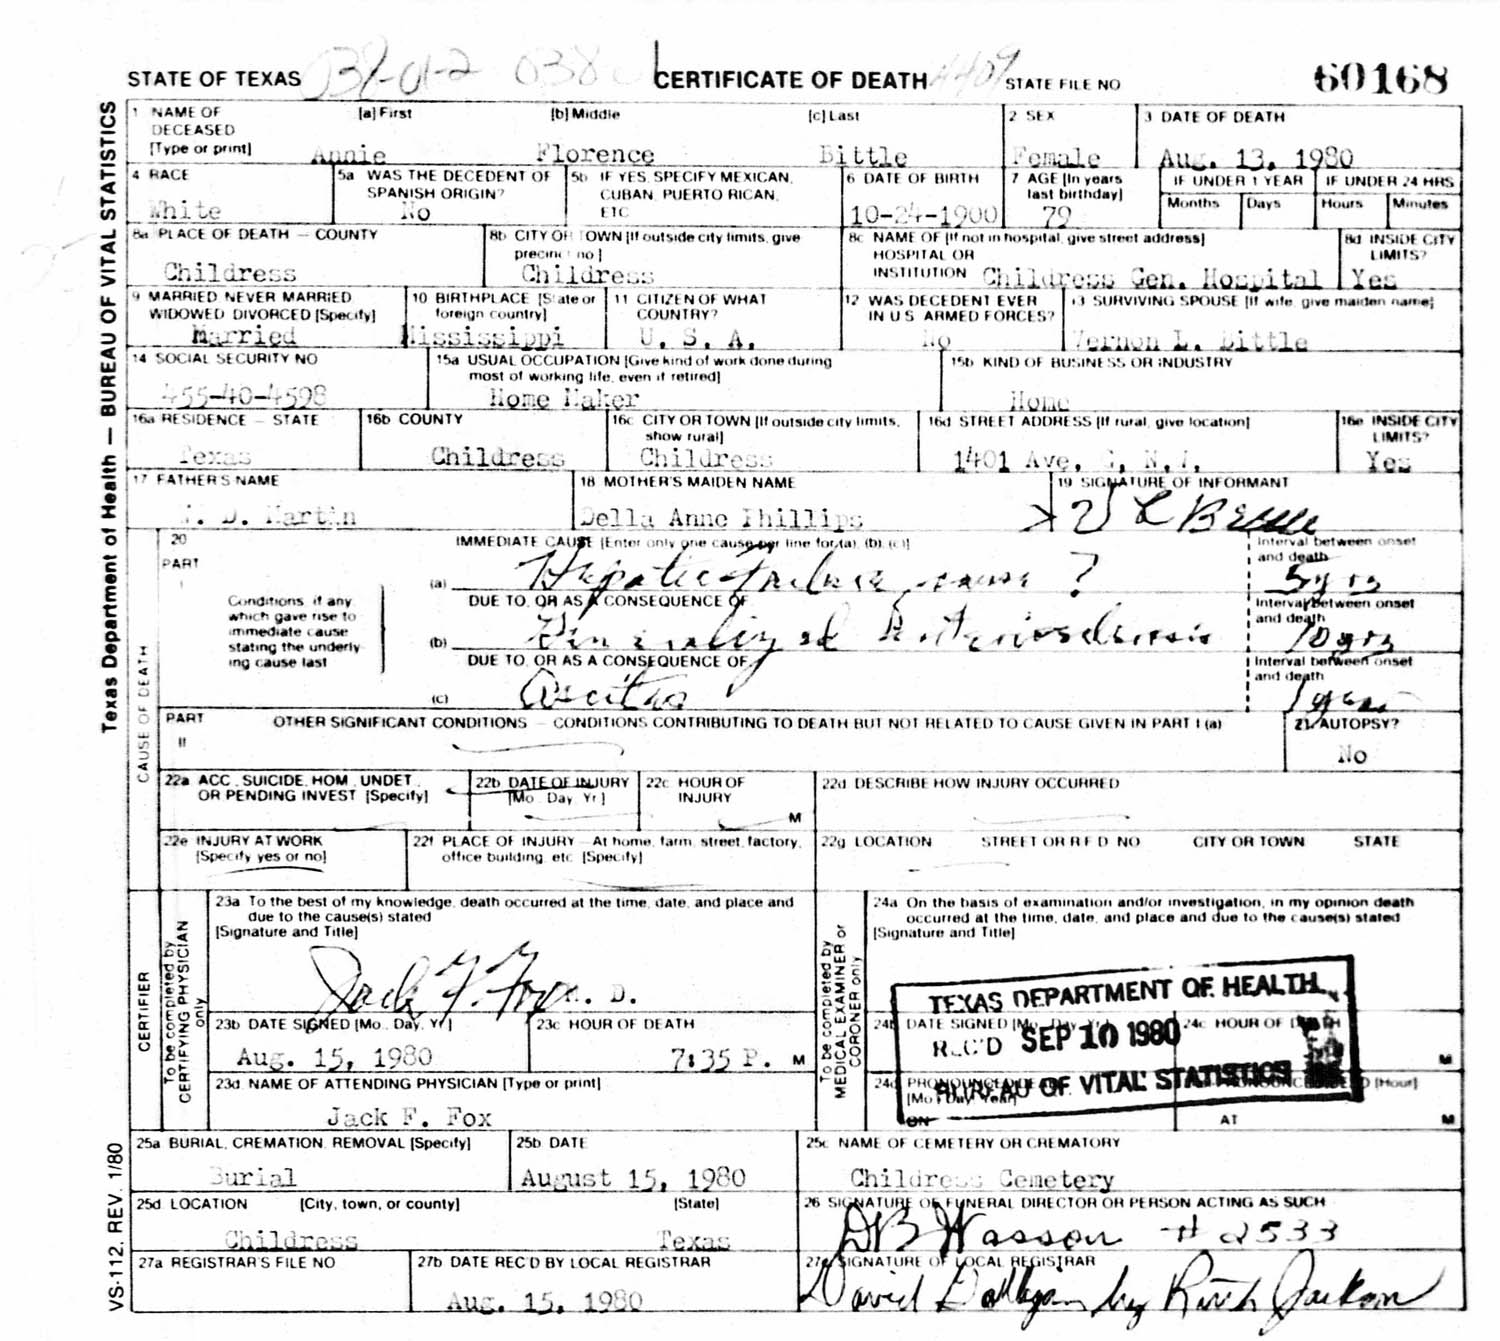 STATE OF TEXAS CERTIFICATE OF DEATH STATE FILE NO 60168
Texas Department of Health — BUREAU OF VITAL STATISTICS
1 NAME OF DECEASED [Type or print] [a] First [b] Middle [c] Last
Annie Florence Bittle
2 SEX
Female
3 DATE OF DEATH
Aug. 13, 1980
4 RACE
White
5a WAS THE DECEDENT OF SPANISH ORIGIN?
No
5b IF YES, SPECIFY MEXICAN, CUBAN, PUERTO RICAN, ETC
6 DATE OF BIRTH
10-24-1900
7 AGE [In years last birthday]
79
IF UNDER 1 YEAR
Months Days
IF UNDER 24 HRS
Hours Minutes
8a PLACE OF DEATH — COUNTY
Childress
8b CITY OR TOWN [If outside city limits, give precinct no]
Childress
8c NAME OF [If not in hospital, give street address] HOSPITAL OR INSTITUTION
Childress Gen. Hospital
8d INSIDE CITY LIMITS?
Yes
9 MARRIED NEVER MARRIED WIDOWED DIVORCED [Specify]
Married
10 BIRTHPLACE [State or foreign country]
Mississippi
11 CITIZEN OF WHAT COUNTRY?
U. S. A.
12 WAS DECEDENT EVER IN U.S. ARMED FORCES?
No
13 SURVIVING SPOUSE [If wife, give maiden name]
Vernon L. Bittle
14 SOCIAL SECURITY NO
455-40-4598
15a USUAL OCCUPATION [Give kind of work done during most of working life, even if retired]
Home Maker
15b KIND OF BUSINESS OR INDUSTRY
Home
16a RESIDENCE — STATE
Texas
16b COUNTY
Childress
16c CITY OR TOWN [If outside city limits, show rural]
Childress
16d STREET ADDRESS [If rural, give location]
1401 Ave. N.W.
16e INSIDE CITY LIMITS?
Yes
17 FATHER'S NAME
D. Martin
18 MOTHER'S MAIDEN NAME
Della Anne Phillips
19 SIGNATURE OF INFORMANT
X V L Bittle
CAUSE OF DEATH
20 PART I
IMMEDIATE CAUSE [Enter only one cause per line for (a), (b), (c)]
Conditions, if any which gave rise to immediate cause stating the underlying cause last
(a) Hepatic Failure, cause ?
Interval between onset and death
5 yrs
DUE TO, OR AS A CONSEQUENCE OF
(b) Generalized Arteriosclerosis
Interval between onset and death
10 yrs
DUE TO, OR AS A CONSEQUENCE OF
(c) Ascites
Interval between onset and death
1 year
PART II
OTHER SIGNIFICANT CONDITIONS — CONDITIONS CONTRIBUTING TO DEATH BUT NOT RELATED TO CAUSE GIVEN IN PART I (a)
21 AUTOPSY?
No
22a ACC, SUICIDE, HOM, UNDET, OR PENDING INVEST [Specify]
22b DATE OF INJURY [Mo. Day, Yr.]
22c HOUR OF INJURY
M
22d DESCRIBE HOW INJURY OCCURRED
22e INJURY AT WORK [Specify yes or no]
22f PLACE OF INJURY — At home, farm, street, factory, office building, etc [Specify]
22g LOCATION STREET OR R F D NO CITY OR TOWN STATE
CERTIFIER
To be completed by CERTIFYING PHYSICIAN only
23a To the best of my knowledge, death occurred at the time, date, and place and due to the cause(s) stated
[Signature and Title]
Jack F. Fox M. D.
23b DATE SIGNED [Mo., Day, Yr]
Aug. 15, 1980
23c HOUR OF DEATH
7:35 P. M
23d NAME OF ATTENDING PHYSICIAN [Type or print]
Jack F. Fox
To be completed by MEDICAL EXAMINER or CORONER only
24a On the basis of examination and/or investigation, in my opinion death occurred at the time, date, and place and due to the cause(s) stated
[Signature and Title]
TEXAS DEPARTMENT OF HEALTH
REC'D SEP 10 1980
BUREAU OF VITAL STATISTICS
24b DATE SIGNED [Mo., Day, Yr.]
24c HOUR OF DEATH
M
24d PRONOUNCED DEAD [Mo., Day, Year]
ON
PRONOUNCED DEAD [Hour]
AT M
25a BURIAL, CREMATION, REMOVAL [Specify]
Burial
25b DATE
August 15, 1980
25c NAME OF CEMETERY OR CREMATORY
Childress Cemetery
25d LOCATION [City, town, or county] [State]
Childress Texas
26 SIGNATURE OF FUNERAL DIRECTOR OR PERSON ACTING AS SUCH
DB Wasson # 2533
27a REGISTRAR'S FILE NO
27b DATE REC'D BY LOCAL REGISTRAR
Aug. 15, 1980
27c SIGNATURE OF LOCAL REGISTRAR
David by Ruth Jackson
VS-112, REV. 1/80